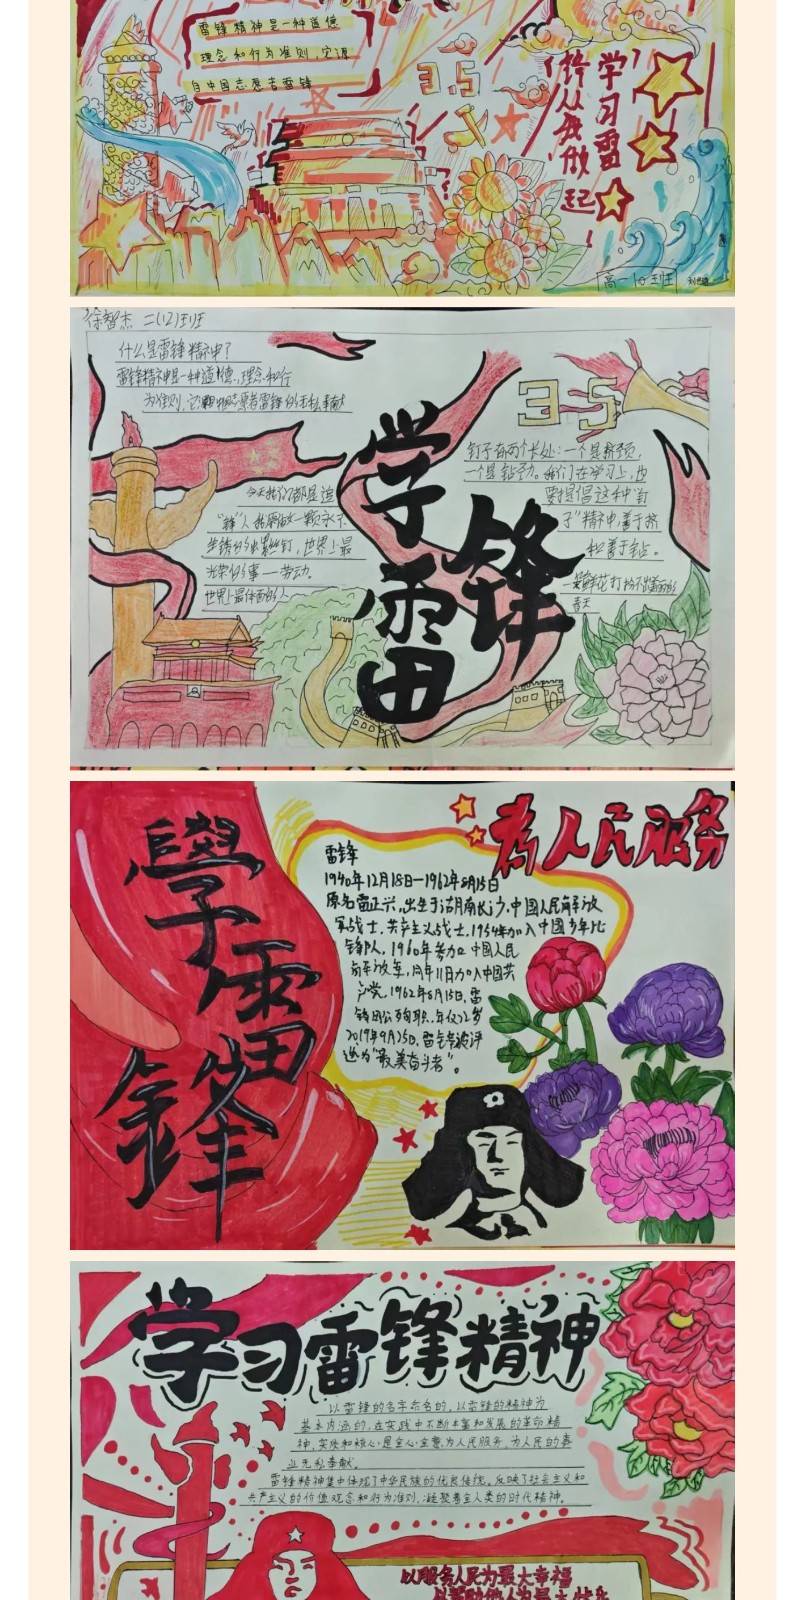 雷锋精神是一种道德
理念和行为准则,它源
自中国志愿者雷锋
3.5
学习雷
锋从我做起!
高一10班
徐智杰 二(12)班
什么是雷锋精神?
雷锋精神是一种道德、理念和行
为准则,它
志愿者雷锋的无私奉献
3 5
钉子有两个长处:一个是挤劲,
一个是钻劲。我们在学习上,也
要提倡这种"钉
子"精神,善于挤
和善于钻。
一朵鲜花打扮不出美丽的
春天
今天我们都是追
"锋"人我愿做一颗永不
生锈的螺丝钉,世界上最
光荣的事——劳动。
世界上最体面的人
学雷锋
為人民服务
學雷鋒
雷锋
1940年12月18日—1962年8月15日
原名雷正兴,出生于湖南长沙,中国人民解放
军战士,共产主义战士,1954年加入中国少年先
锋队,1960年参加中国人民
解放军,同年11月加入中国共
产党,1962年8月15日,雷
锋因公殉职,年仅22岁
2019年9月25日,雷锋被评
选为"最美奋斗者"。
学习雷锋精神
以雷锋的名字命名的,以雷锋的精神为
基本内涵的,在实践中不断丰富和发展的革命精
神,实质和核心是全心全意为人民服务,为人民的事
业无私奉献。
雷锋精神集中体现了中华民族的优良传统,反映了社会主义和
共产主义的价值观念和行为准则,凝聚着全人类的时代精神。
以服务人民为最大幸福
以帮助他人为最大快乐